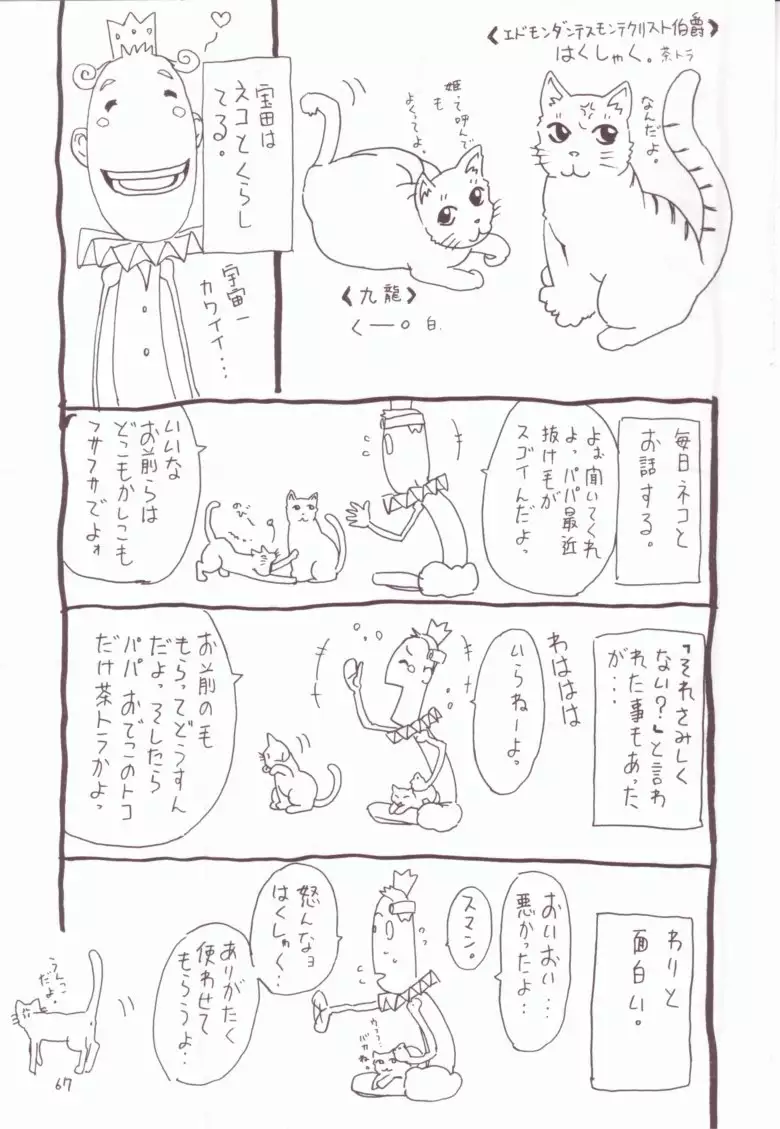 《エドモンダンテスモンテクリスト伯爵》
はくしゃく。茶トラ
なんだよ。
姫って呼んで
も
よくってよ。
《九龍》
くーロン 白
宝田は
ネコとくらし
てる。
宇宙一
カワイイ…
毎日ネコと
お話する。
よぉ聞いてくれ
よっパパ最近
抜け毛が
スゴイんだよっ
いいな
お前らは
どこもかしこも
フサフサでよォ
「それさみしく
ない?」と言わ
れた事もあった
が…
わははは
いらねーよっ
お前の毛
もらってどうすん
だよっそしたら
パパおでこのトコ
だけ茶トラかよっ
わりと
面白い。
おいおい…
悪かったよ…
スマン。
怒んなョ
はくしゃく…
ありがたく
使わせて
もらうよ…
うんこ
だよ。
バカね。
67